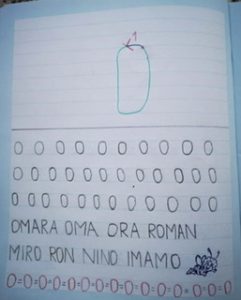 1
O O O O O O O O O O O O
O O O O O O O O O O O O
O O O O O O O O O O O O
OMARA OMA ORA ROMAN
MIRO RON NINO IMAMO
O=O=O=O=O=O=O=O=O=O=O=O=O=O